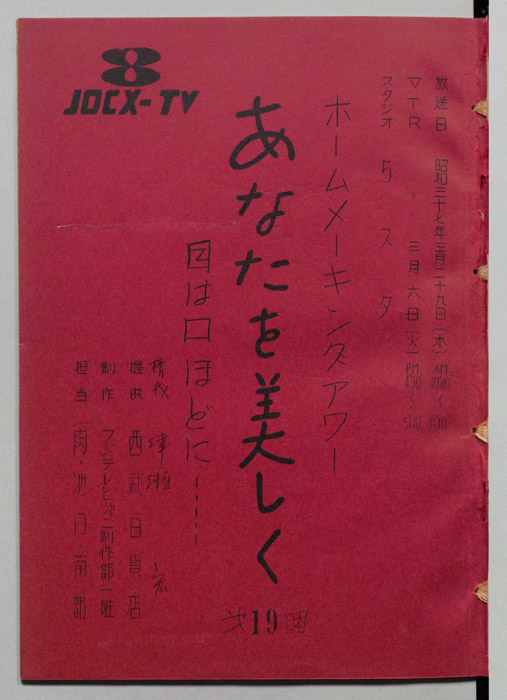 JOCX-TV
放送日 昭和三十七年三月二十九日(木) AM 10:40〜
VTR. 三月六日(火) PM 4:30〜5:00
スタジオ 5スタ
ホームメーキングアワー
あなたを美しく
目は口ほどに……
第19回
構成 津瀬 宏
提供 西武百貨店
制作 フジテレビ 制作部一班
担当 岡・池田・南部